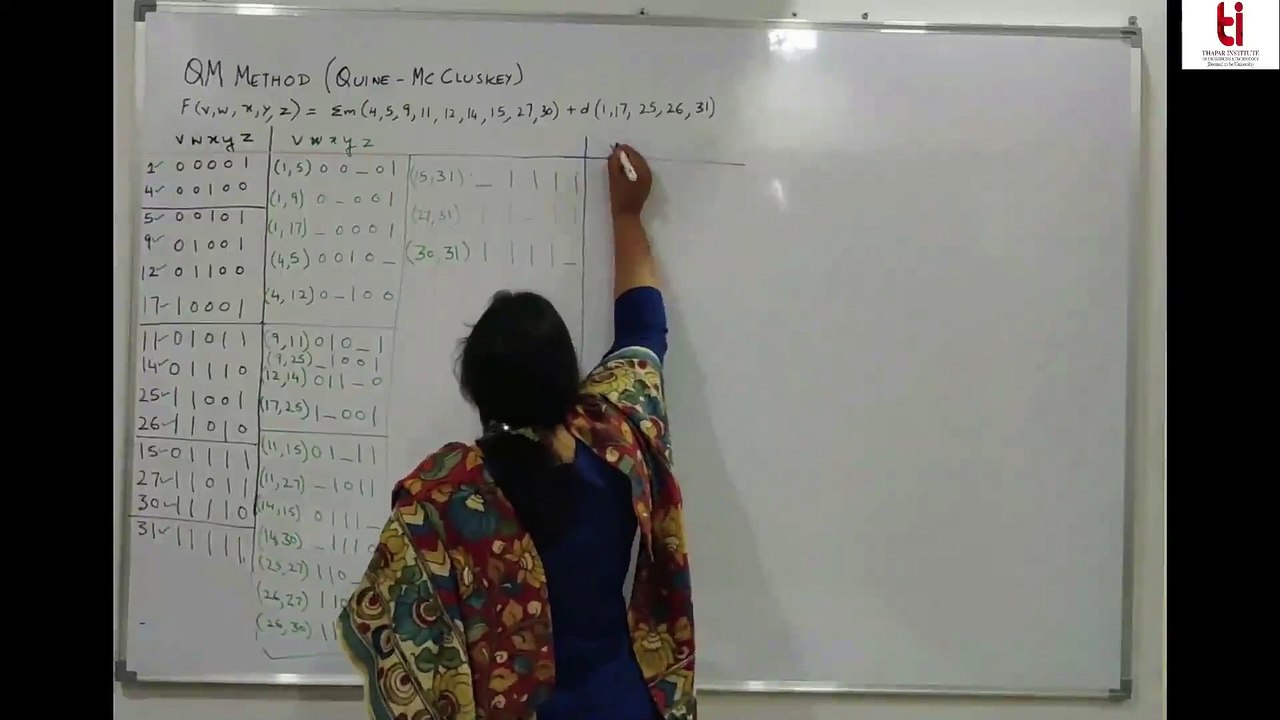 QM METHOD (QUINE - MC CLUSKEY)
F(v,w,x,y,z) = Σm(4,5,9,11,12,14,15,27,30) + d(1,17,25,26,31)
v w x y z
1✓ 0 0 0 0 1
4✓ 0 0 1 0 0
5✓ 0 0 1 0 1
9✓ 0 1 0 0 1
12✓ 0 1 1 0 0
17✓ 1 0 0 0 1
11✓ 0 1 0 1 1
14✓ 0 1 1 1 0
25✓ 1 1 0 0 1
26✓ 1 1 0 1 0
15✓ 0 1 1 1 1
27✓ 1 1 0 1 1
30✓ 1 1 1 1 0
31✓ 1 1 1 1 1
v w x y z
(1,5) 0 0 _ 0 1
(1,9) 0 _ 0 0 1
(1,17) _ 0 0 0 1
(4,5) 0 0 1 0 _
(4,12) 0 _ 1 0 0
(9,11) 0 1 0 _ 1
(9,25) _ 1 0 0 1
(12,14) 0 1 1 _ 0
(17,25) 1 _ 0 0 1
(11,15) 0 1 _ 1 1
(11,27) _ 1 0 1 1
(14,15) 0 1 1 1 _
(14,30) _ 1 1 1 0
(25,27) 1 1 0 _
(26,27) 1 1 0
(26,30) 1 1
(15,31) _ 1 1 1 1
(27,31) 1 1 _ 1 1
(30,31) 1 1 1 1 _
ti
THAPAR INSTITUTE
OF ENGINEERING & TECHNOLOGY
(Deemed to be University)